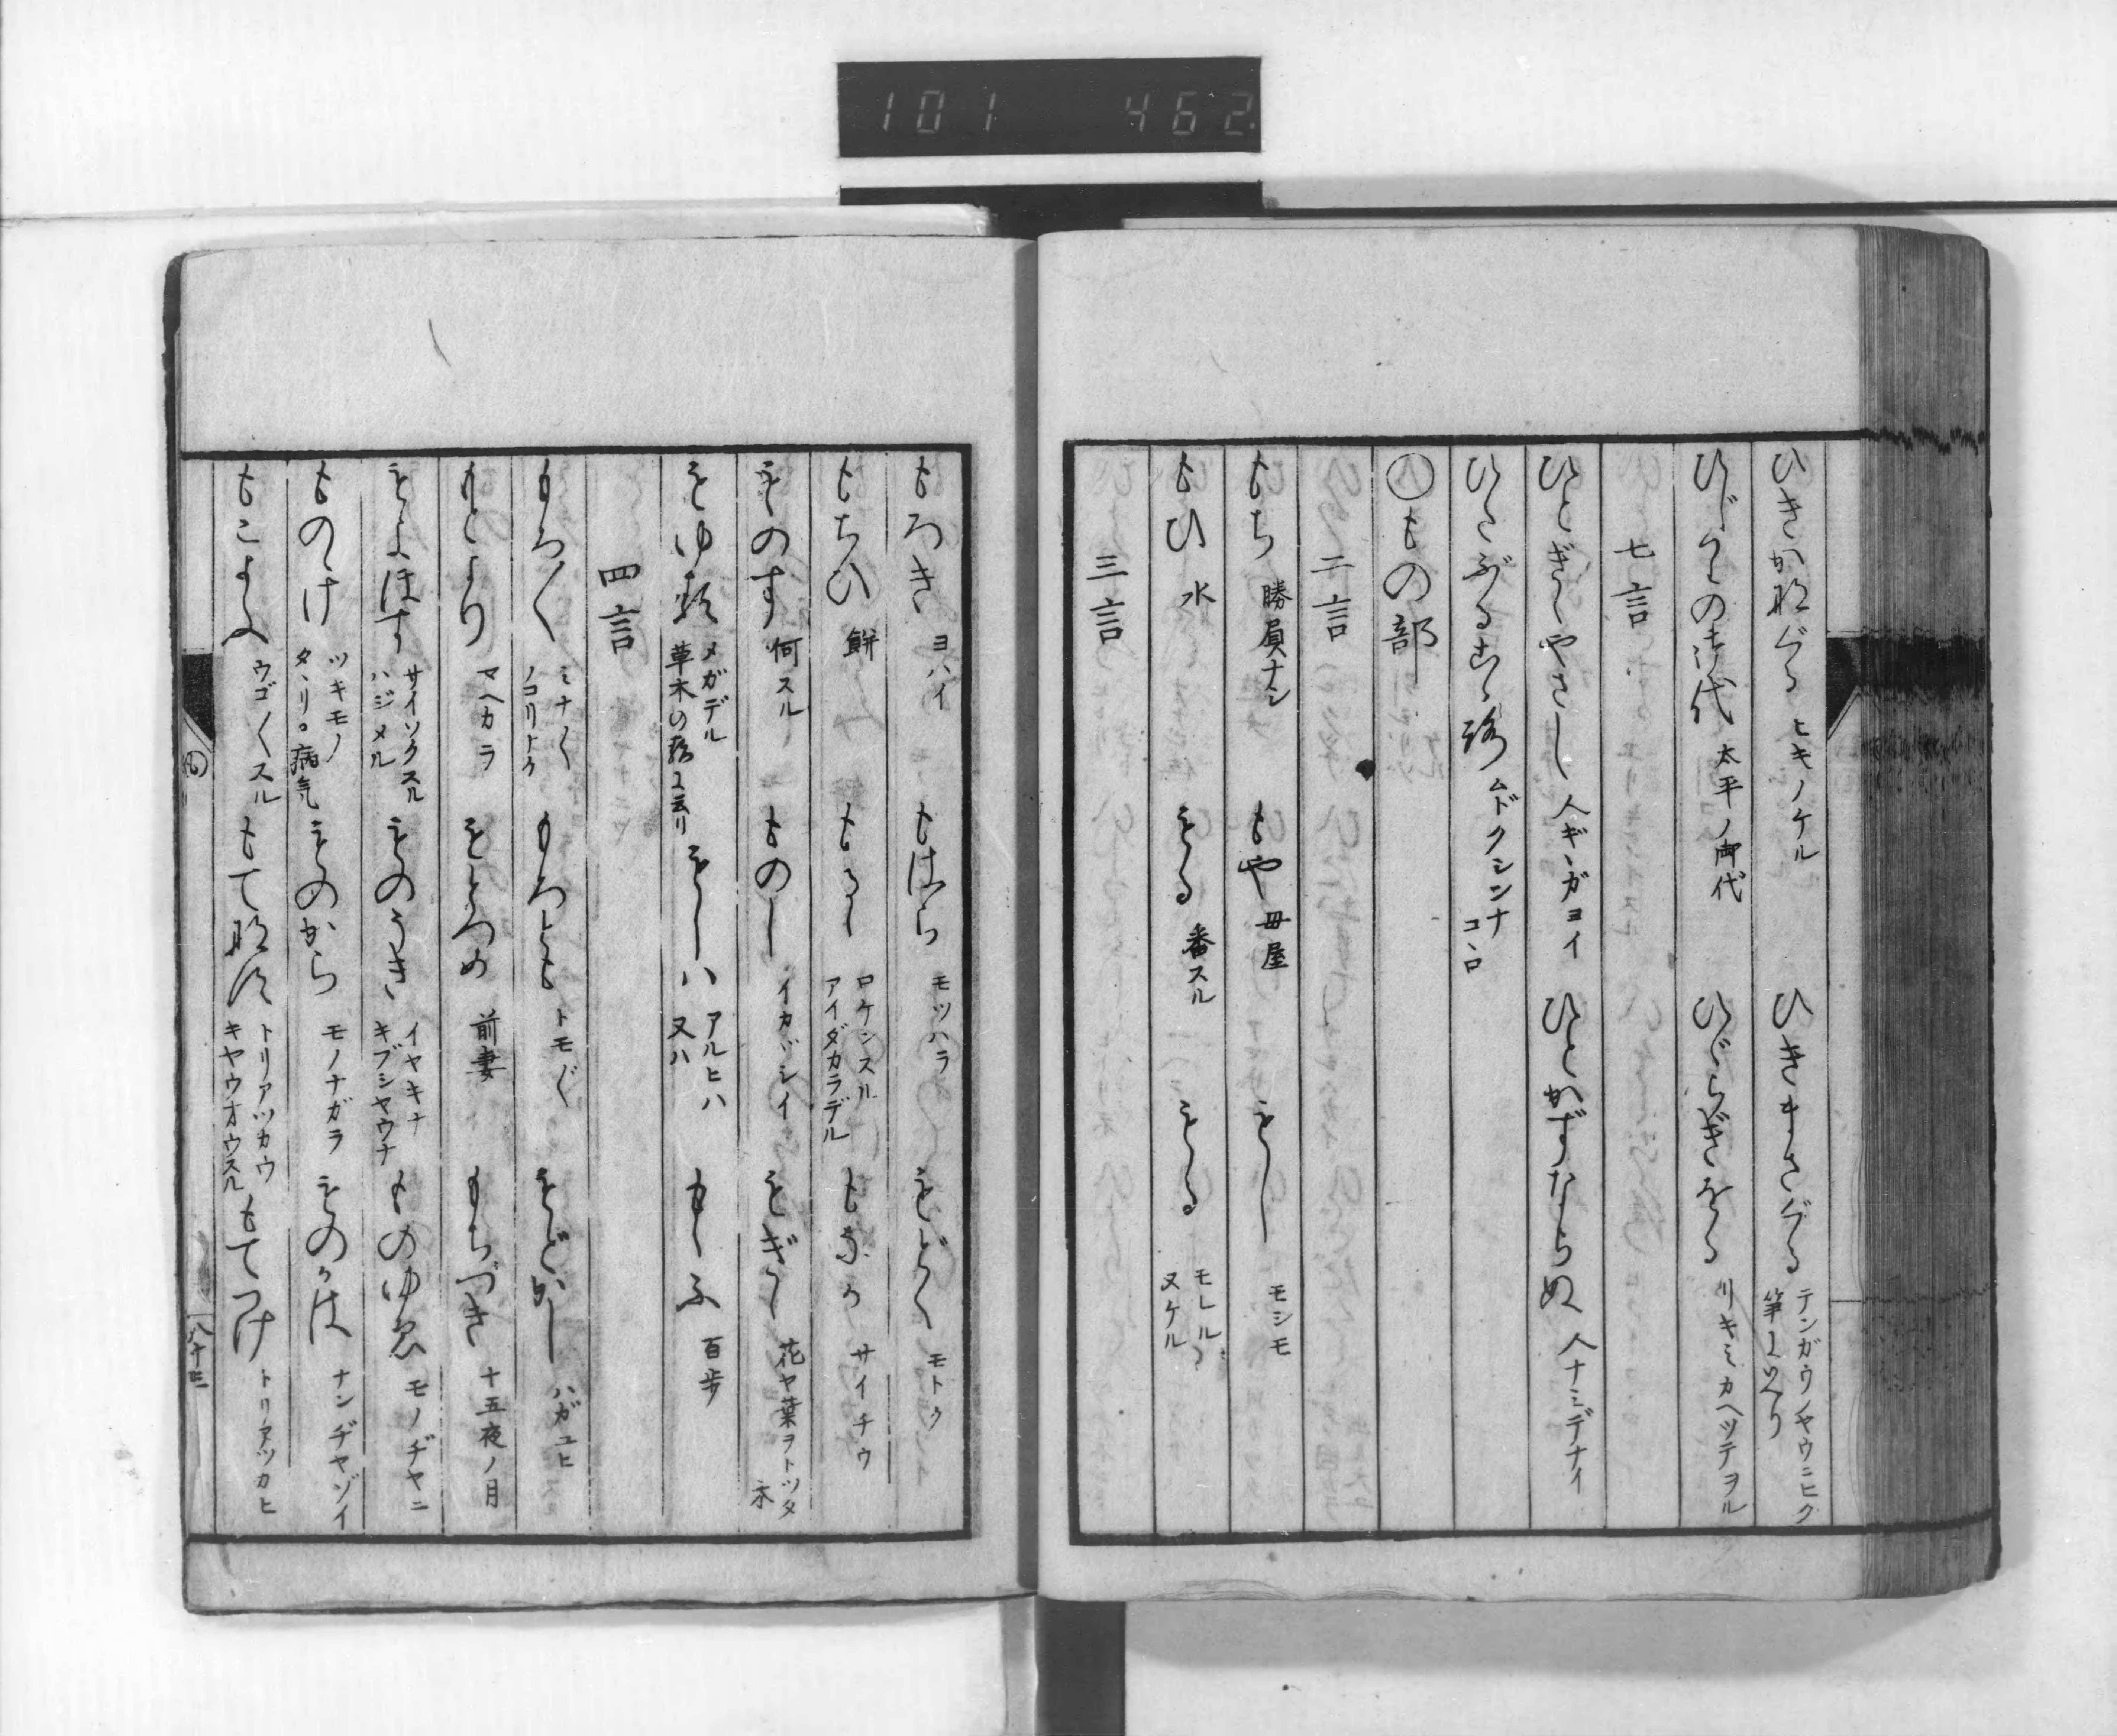 101 462
ひきかなぐる ヒキノケル ひきまさぐる テンガウノヤウニヒク
ひじりの御代 太平ノ御代 ひぢらぎをる リキミカヘツテヲル
七言
ひとぎゝやさし 人ギヽガヨイ ひとかずならぬ 人ナミデナイ
ひたぶるこゝろ ムドクシンナコヽロ
○もの部
二言
もち 勝負ナシ もや 毋屋 もし モシモ
もひ 水 もる 番スル もる モレル 又ケル
三言
もろき ヨハイ もはら モツハラ もどく モトク
もちひ 餅 もるゝ ロケンスル アイダカラデル もなか サイチウ
ものす 何スル ものし イカヾシイ もぎき 花ヤ葉ヲトツタ木
もゆる メガデル 草木の 云り もしハ アルヒハ 又ハ もゝふ 百歩
四言
もろ〳〵 ミナ〳〵 ノコリナク もろとも トモ〴〵 もどかし ハガユヒ
もとより マヘカラ もとつめ 前妻 もちづき 十五夜ノ月
もよほす サイソクスル ハジメル ものうき イヤキナ キブシヤウナ ものゆゑ モノヂヤニ
ものゝけ ツキモノ タヽリ。病気 ものから モノナガラ ものかは ナンヂヤゾイ
もこよふ ウゴ〳〵スル もてなす トリアツカウ キヤウオウスル もてつけ トリアツカヒ
八十三